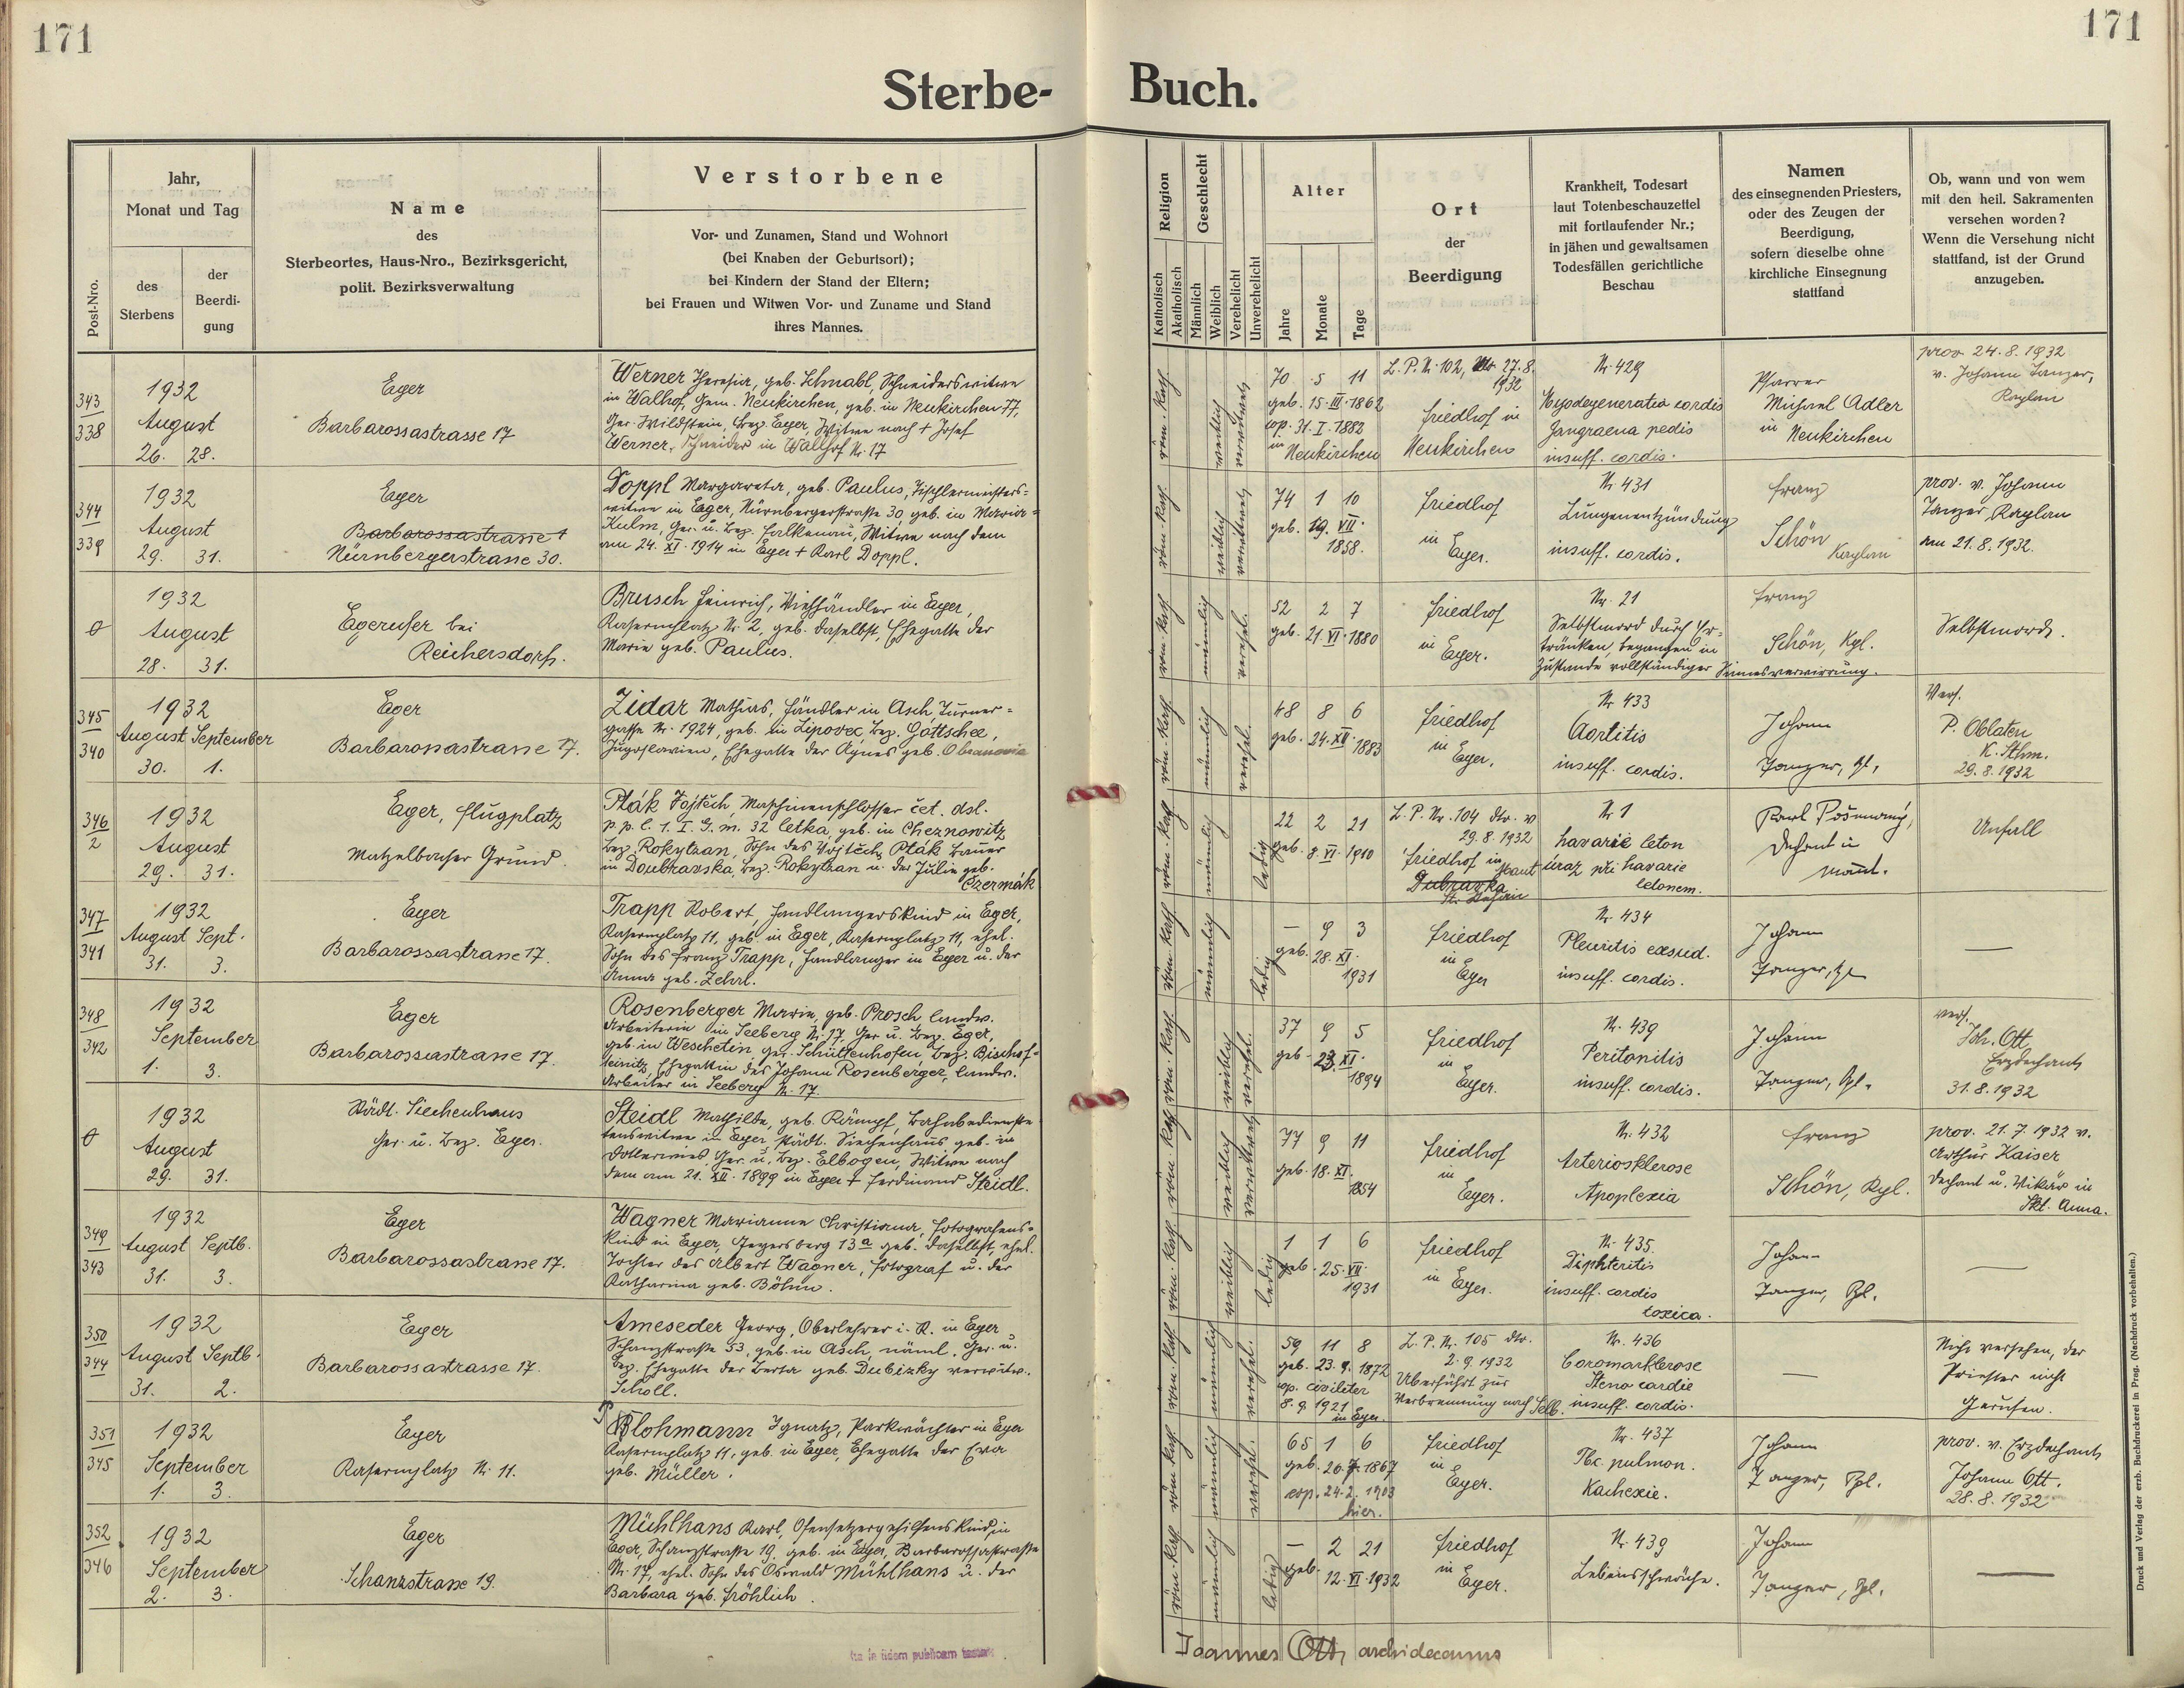 171
171
Sterbe-
Buch.
Post-Nro.
Jahr,
Monat und Tag
des
Sterbens
der
Beerdi-
gung
Name
des
Sterbeortes, Haus-Nro., Bezirksgericht,
polit. Bezirksverwaltung
Verstorbene
Vor- und Zunamen, Stand und Wohnort
(bei Knaben der Geburtsort);
bei Kindern der Stand der Eltern;
bei Frauen und Witwen Vor- und Zuname und Stand
ihres Mannes.
Religion
Katholisch
Akatholisch
Geschlecht
Männlich
Weiblich
Verehelicht
Unverehelicht
Alter
Jahre
Monate
Tage
Ort
der
Beerdigung
Krankheit, Todesart
laut Totenbeschauzettel
mit fortlaufender Nr.;
in jähen und gewaltsamen
Todesfällen gerichtliche
Beschau
Namen
des einsegnenden Priesters,
oder des Zeugen der
Beerdigung,
sofern dieselbe ohne
kirchliche Einsegnung
stattfand
Ob, wann und von wem
mit den heil. Sakramenten
versehen worden?
Wenn die Versehung nicht
stattfand, ist der Grund
anzugeben.
343
338
1932
August
26. 28.
Eger
Barbarossastrasse 17
Werner Theresia, geb. Schnabl, Schneiderswitwe
in Walhof, Gem. Neukirchen, geb. in Neukirchen 77,
Ger. Wildstein, Bez. Eger, Witwe nach + Josef
Werner, Schneider in Wallhof Nr. 17
röm. kath.
weiblich
verwitwet
70 5 11
geb. 15. III. 1862
cop. 31. I. 1883
in Neukirchen
L. P. Nr. 102, 27.8.
1932
Friedhof in
Neukirchen
Nr 429
Myodegeneratio cordis
Gangraena pedis
insuff. cordis.
Pfarrer
Michael Adler
in Neukirchen
prov. 24.8.1932
v. Johann Tanzer,
Kaplan
344
339
1932
August
29. 31.
Eger
Barbarossastrasse 1
Nürnbergerstrasse 30.
Doppl Margareta, geb. Paulus, Tischlermeisters-
witwe in Eger, Nürnbergerstraße 30, geb. in Maria-
Kulm, Ger. u. Bez. Falkenau, Witwe nach dem
am 24. XI. 1914 in Eger + Karl Doppl.
röm. kath.
weiblich
verwitwet
74 1 10
geb. 19. VII.
1858.
Friedhof
in
Eger.
Nr. 431
Lungenentzündung
insuff. cordis.
Franz
Schön
Kaplan
prov. v. Johann
Tanzer, Kaplan
am 21.8.1932.
1932
August
28. 31.
Egerufer bei
Reichersdorf.
Brusch Heinrich, Viehhändler in Eger,
Kasernplatz Nr. 2, geb. daselbst, Ehegatte der
Marie geb. Paulus.
röm. kath.
männlich
verehel.
52 2 7
geb. 21. VI. 1880
Friedhof
in
Eger.
Nr. 21
Selbstmord durch Er-
tränken, begangen im
Zustande vollständiger Sinnesverwirrung.
Franz
Schön, Kpl.
Selbstmord.
345
340
1932
August September
30. 1.
Eger
Barbarossastrasse 17.
Zidar Mathias, Händler in Asch, Turner-
gasse Nr. 1924, geb. in Lipovec, Bez. Gottschee,
Jugoslavien, Ehegatte der Agnes geb. Obranovic
röm. kath.
männlich
verehel.
48 8 6
geb. 24. XII. 1883
Friedhof
in
Eger.
Nr 433
Aortitis
insuff. cordis.
Johann
Tanzer, Kpl.
Vers.
P. Oblaten
29.8.1932
346
2
1932
August
29. 31.
Eger, Flugplatz
Matzelbacher Grund.
Pták Vojtěch, Maschinenschlosser čet. dsl.
p. p. l. 1. I. G. m. 32 letka, geb. in Cheznowitz
Bez. Rokytzan, Sohn des Vojtěch Pták Bauer
in Doubravska, Bez. Rokytzan u. der Julie geb.
Czermák
röm. kath.
männlich
ledig
22 2 21
geb. 8. VI. 1910
L. P. Nr. 104 dto. v
29.8.1932
Friedhof in
Dubravka
Nr 1
havarie leton
úraz při havarie
letonem.
Dechant in
Unfall
347
341
1932
August Sept.
31. 3.
Eger
Barbarossastrasse 17.
Trapp Robert, Handlangerskind in Eger,
Kasernplatz 11, geb. in Eger, Kasernplatz 11, ehel.
Sohn des Franz Trapp, Handlanger in Eger u. der
Anna geb. Zehrl.
röm. kath.
männlich
ledig
— 9 3
geb. 28. XI.
1931
Friedhof
in
Eger
Nr. 434
Pleuritis exsud.
insuff. cordis.
Johann
Tanzer, Kpl
—
348
342
1932
September
1. 3.
Eger
Barbarossastrasse 17.
Rosenberger Marie, geb. Prosch landw.
Arbeiterin in Seeberg Nr. 17, Ger. u. Bez. Eger,
geb. in Weschetin, Ger. Schüttenhofen, Bez. Bischof-
teinitz, Ehegattin des Johann Rosenberger, landw.
Arbeiter in Seeberg Nr. 17.
röm. kath.
weiblich
verehel.
37 9 5
geb. 23. XI.
1894
Friedhof
in
Eger.
Nr. 439
Peritonitis
insuff. cordis.
Johann
Tanzer, Kpl.
vers.
Joh. Ott,
Erzdechant
31.8.1932
1932
August
29. 31.
Städt. Siechenhaus
Ger. u. Bez. Eger.
Steidl Mathilde, geb. Kämpf, Bahnbedienste-
tenswitwe in Eger, städt. Siechenhaus geb. in
Ger. u. Bez. Elbogen, Witwe nach
dem am 21. XII. 1899 in Eger + Ferdinand Steidl.
röm. kath.
weiblich
verwitwet
77 9 11
geb. 18. XI.
1854
Friedhof
in
Eger.
Nr. 432
Arteriosklerose
Apoplexia
Franz
Schön, Kpl.
prov. 21.7.1932 v.
Arthur Kaiser
Dechant u. Vikär in
Skt. Anna.
349
343
1932
August Septb.
31. 3.
Eger
Barbarossastrasse 17.
Wagner Marianne Christiana, Fotografens-
kind in Eger, Geyersberg 13a geb. daselbst, ehel.
Tochter des Albert Wagner, Fotograf u. der
Katharina geb. Böhm.
röm. kath.
weiblich
ledig
1 1 6
geb. 25. VII.
1931
Friedhof
in Eger.
Nr. 435.
Diphteritis
insuff. cordis
toxica.
Johann
Tanzer, Kpl.
—
350
344
1932
August Septb.
31. 2.
Eger
Barbarossastrasse 17.
Ameseder Georg, Oberlehrer i. R. in Eger
Schanzstraße 53, geb. in Asch, näml. Ger. u.
Bez. Ehegatte der Berta geb. Dubizky verwitw.
Scholl.
röm. kath.
männlich
verehel.
59 11 8
geb. 23.9.1872
cop. civiliter
8.9.1921
in Eger.
L. P. Nr. 105 dto.
2.9.1932
Überführt zur
Verbrennung nach Selb.
Nr. 436
Coromarklerose
Steno cardie
insuff. cordis.
—
Nicht versehen, der
Priester nicht
gerufen.
351
345
1932
September
1. 3.
Eger
Kasernplatz Nr. 11.
Plohmann Ignatz, Parkwächter in Eger
Kasernplatz 11, geb. in Eger, Ehegatte der Eva
geb. Müller.
röm. kath.
männlich
verehel.
65 1 6
geb. 20.7.1867
cop. 24.2.1903
hier.
Friedhof
in
Eger.
Nr. 437
Tbc. pulmon.
Kachexie.
Johann
Tanzer, Kpl.
prov. v. Erzdechant
Johann Ott.
28.8.1932
352
346
1932
September
2. 3.
Eger
Schanzstrasse 19.
Mühlhans Karl, Ofensetzergehilfenskind, in
Eger, Schanzstraße 19, geb. in Eger, Barbarossastraße
Nr. 17, ehel. Sohn des Oswald Mühlhans u. der
Barbara geb. Fröhlich.
röm. kath.
männlich
ledig
— 2 21
geb.
12. VI. 1932
Friedhof
in
Eger.
Nr. 439
Lebensschwäche.
Johann
Tanzer, Kpl.
—
Joannes Ott, archidecanus
Druck und Verlag der erzb. Buchdruckerei in Prag. (Nachdruck vorbehalten.)